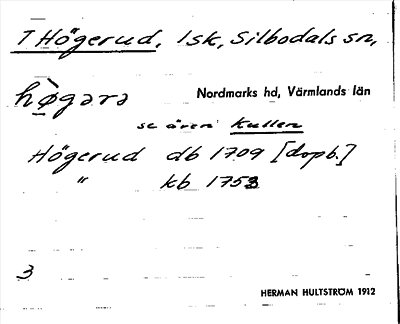 T Högerud, 1sk, Silbodals sn,
hø̀gərə Nordmarks hd, Värmlands län
se även Kullen
Högerud db 1709 [dopb.]
" kb 1753
3
HERMAN HULTSTRÖM 1912